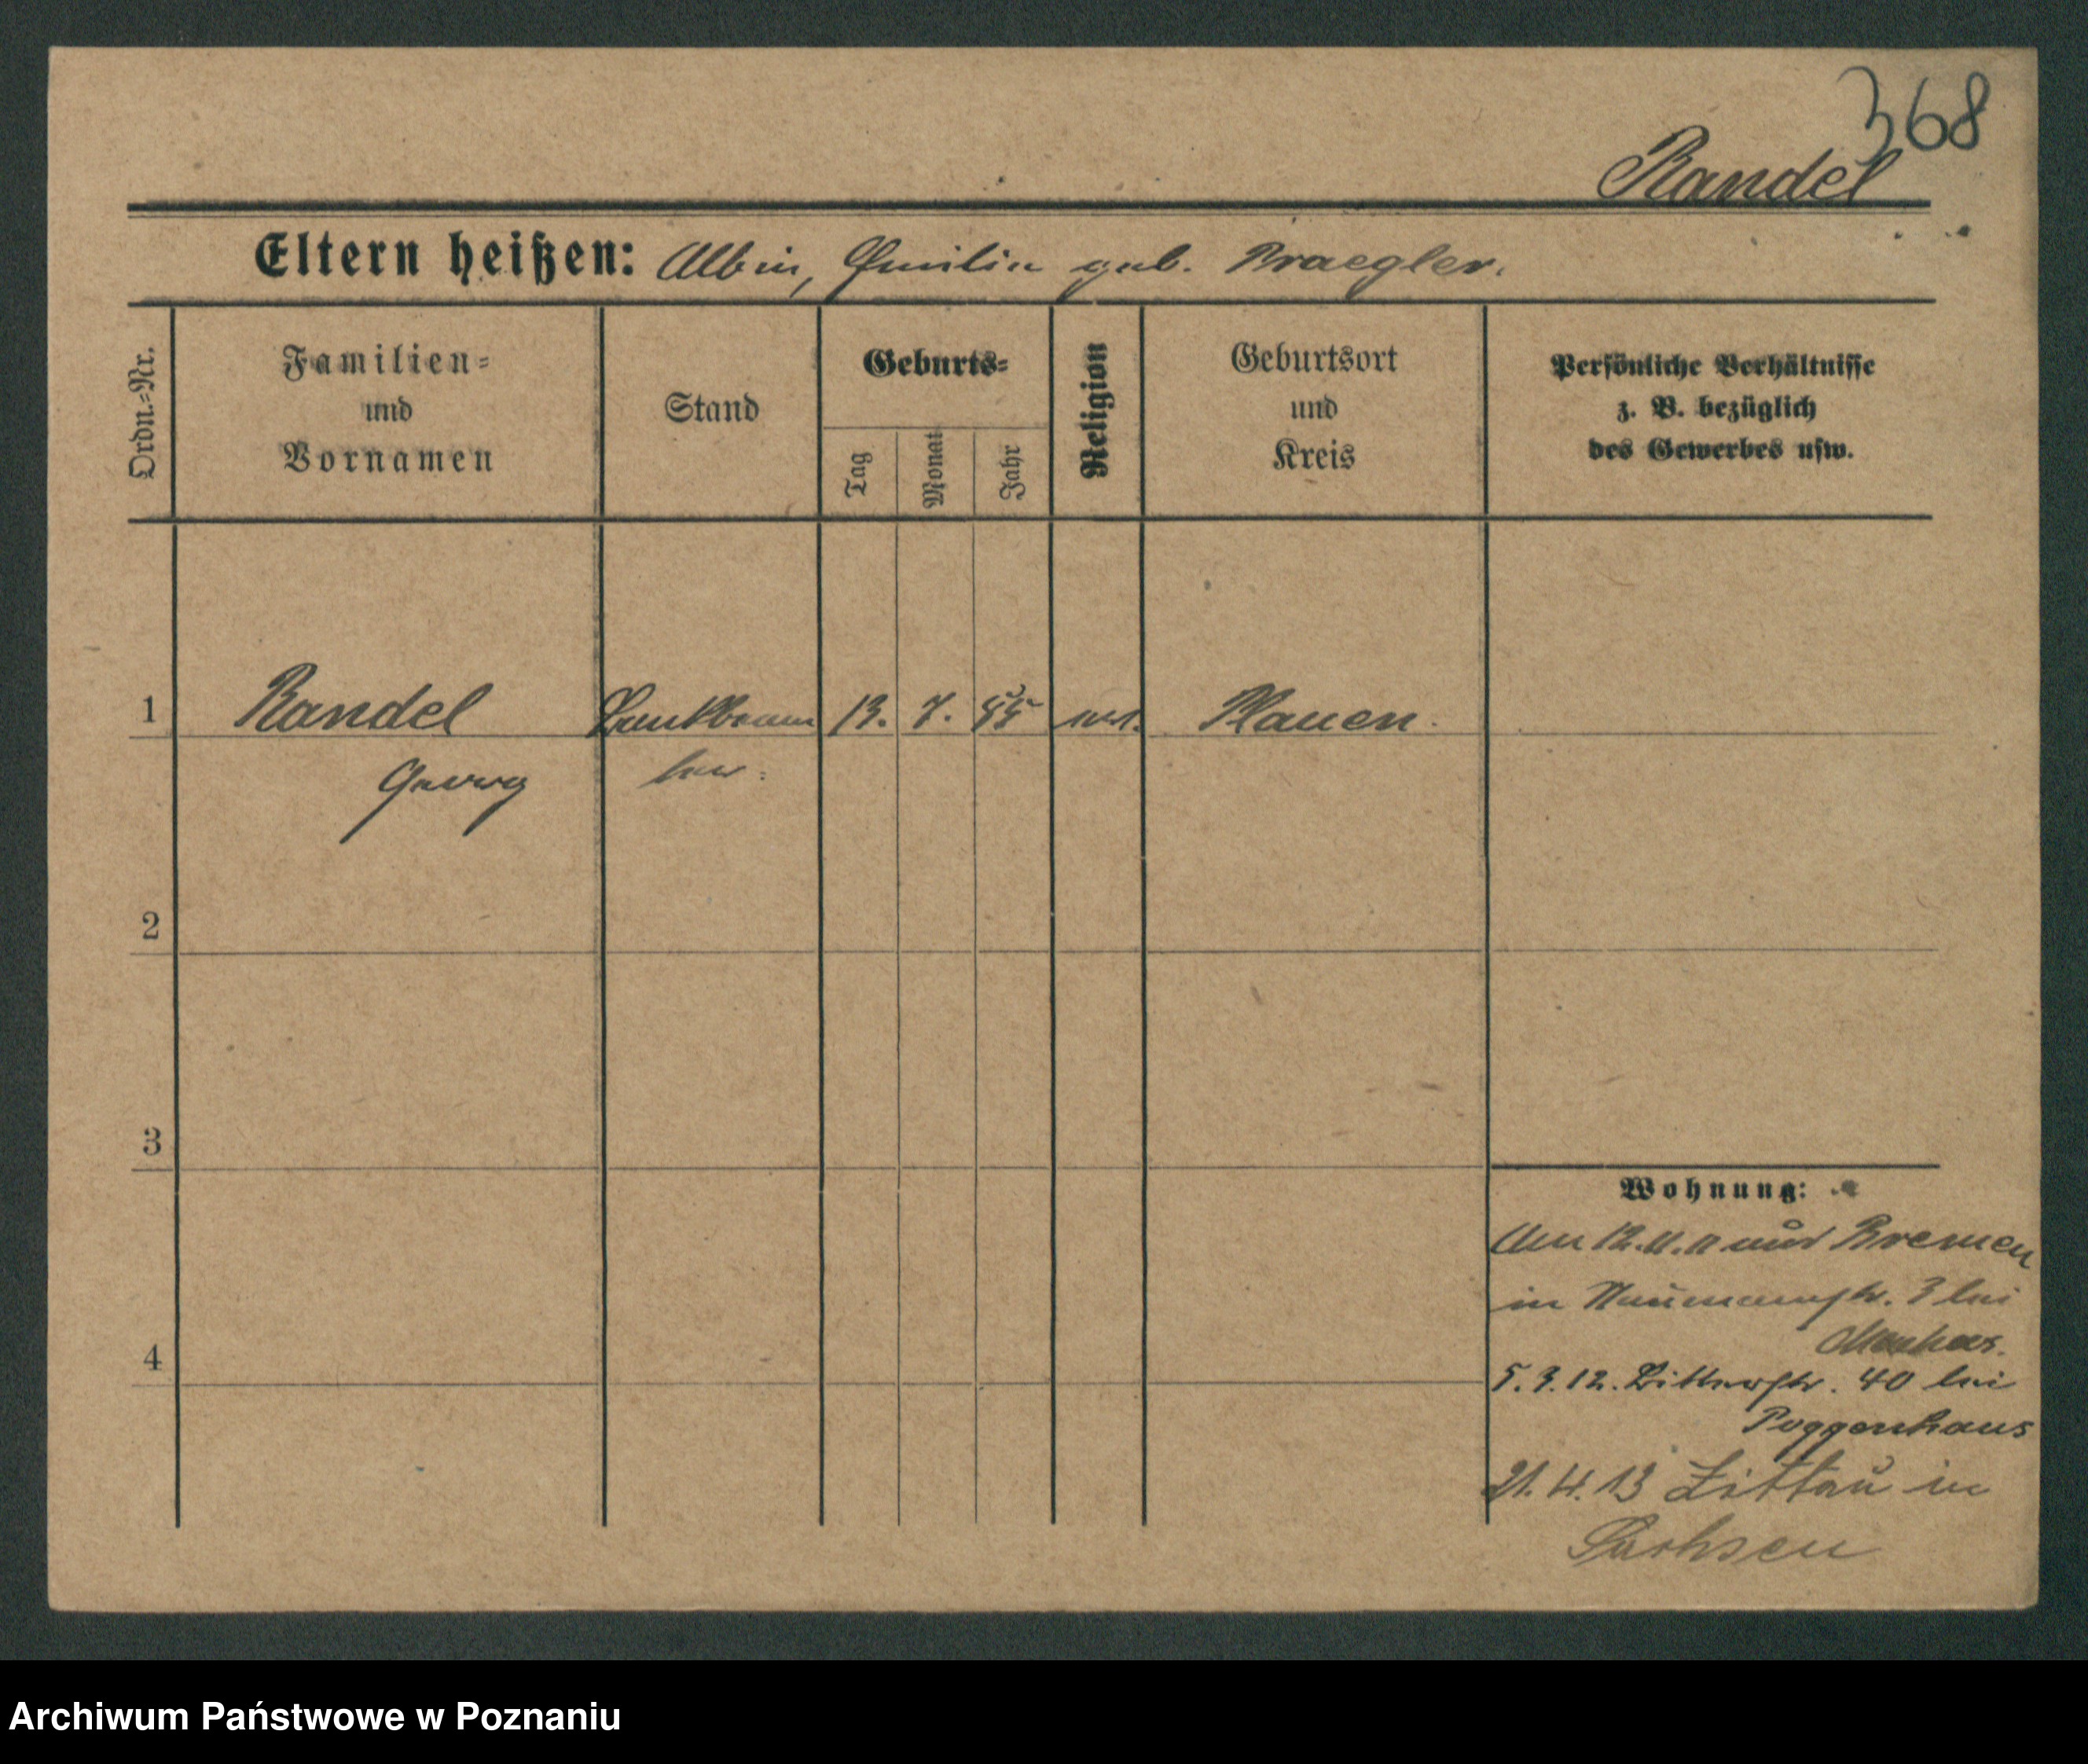 368
Randel
Eltern heißen: Albin, Emilie geb. Braegler.
Ordn.-Nr.
Familien-
und
Vornamen
Stand
Geburts-
Tag
Monat
Jahr
Religion
Geburtsort
und
Kreis
Persönliche Verhältnisse
z. B. bezüglich
des Gewerbes usw.
1 Randel Bankbeam 13. 7. Plauen.
Georg ter.
2
3
4
Wohnung:
Am 12.11.11 aus Bremen
in Naumannstr. 3 bei
5.3.12. Ritterstr. 40 bei
Poggenhans
21.4.13 Zittau in
Sachsen
Archiwum Państwowe w Poznaniu